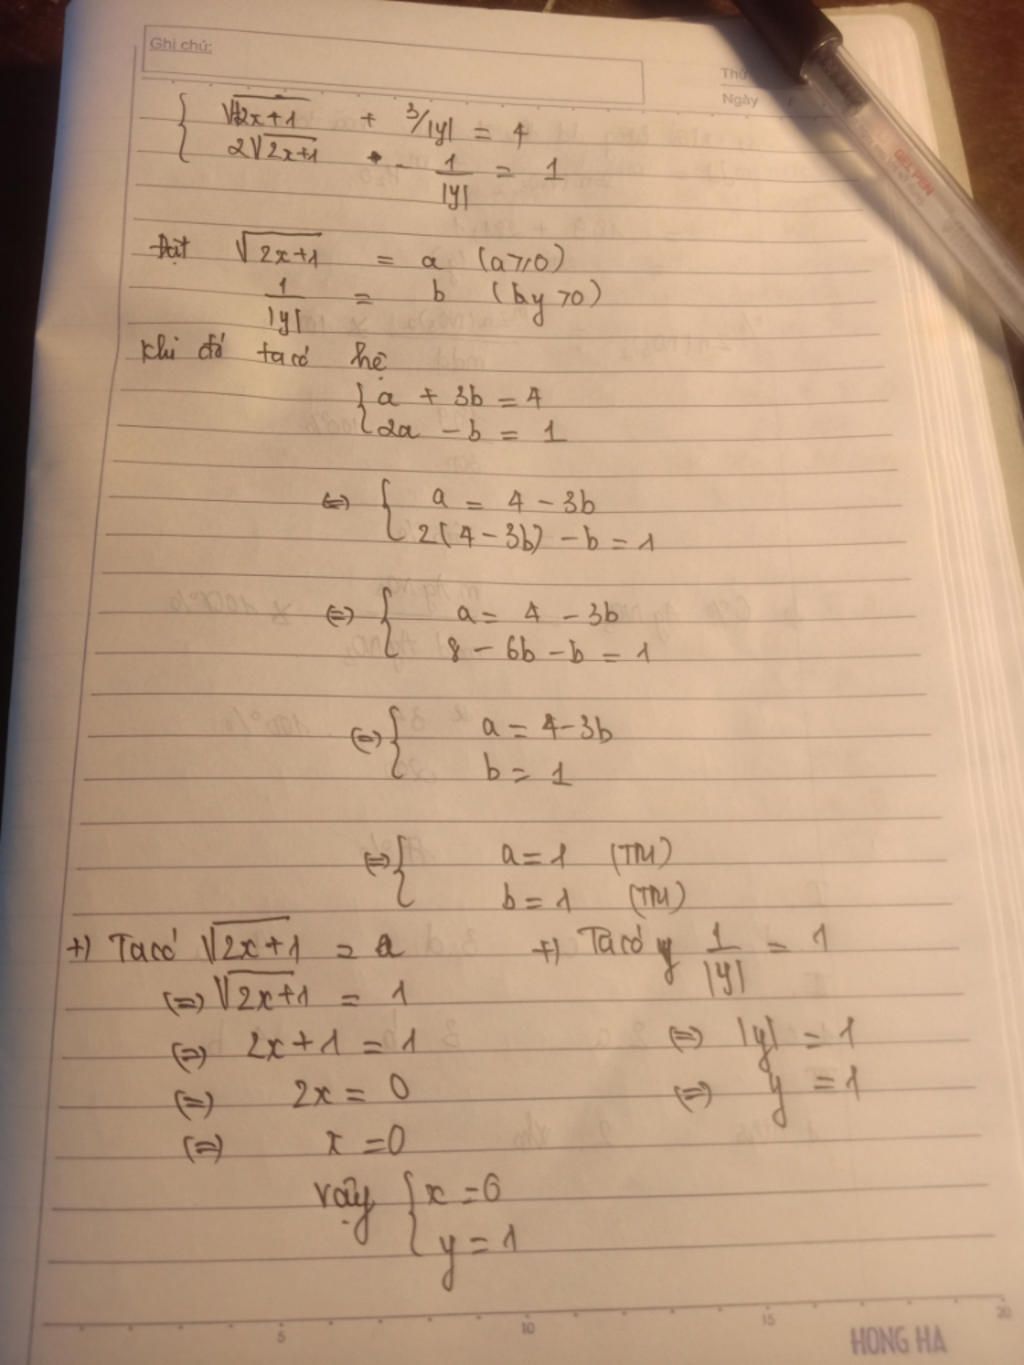 Ghi chú:
Thứ
Ngày
√2x+1 + 3/|y| = 4
2√2x+1 - 1/|y| = 1
Đặt √2x+1 = a (a≥0)
1/|y| = b (by>0)
Khi đó ta có hệ
{ a + 3b = 4
2a - b = 1
⇔ { a = 4 - 3b
2(4 - 3b) - b = 1
⇔ { a = 4 - 3b
8 - 6b - b = 1
⇔ { a = 4 - 3b
b = 1
⇔ { a = 1 (TM)
b = 1 (TM)
+) Ta có √2x+1 = a +) Ta có 1/|y| = 1
⇔ √2x+1 = 1
⇔ 2x+1 = 1 ⇔ |y| = 1
⇔ 2x = 0 ⇔ y = 1
⇔ x = 0
Vậy { x = 0
y = 1
5 10 15 20
HONG HA
GEL PEN